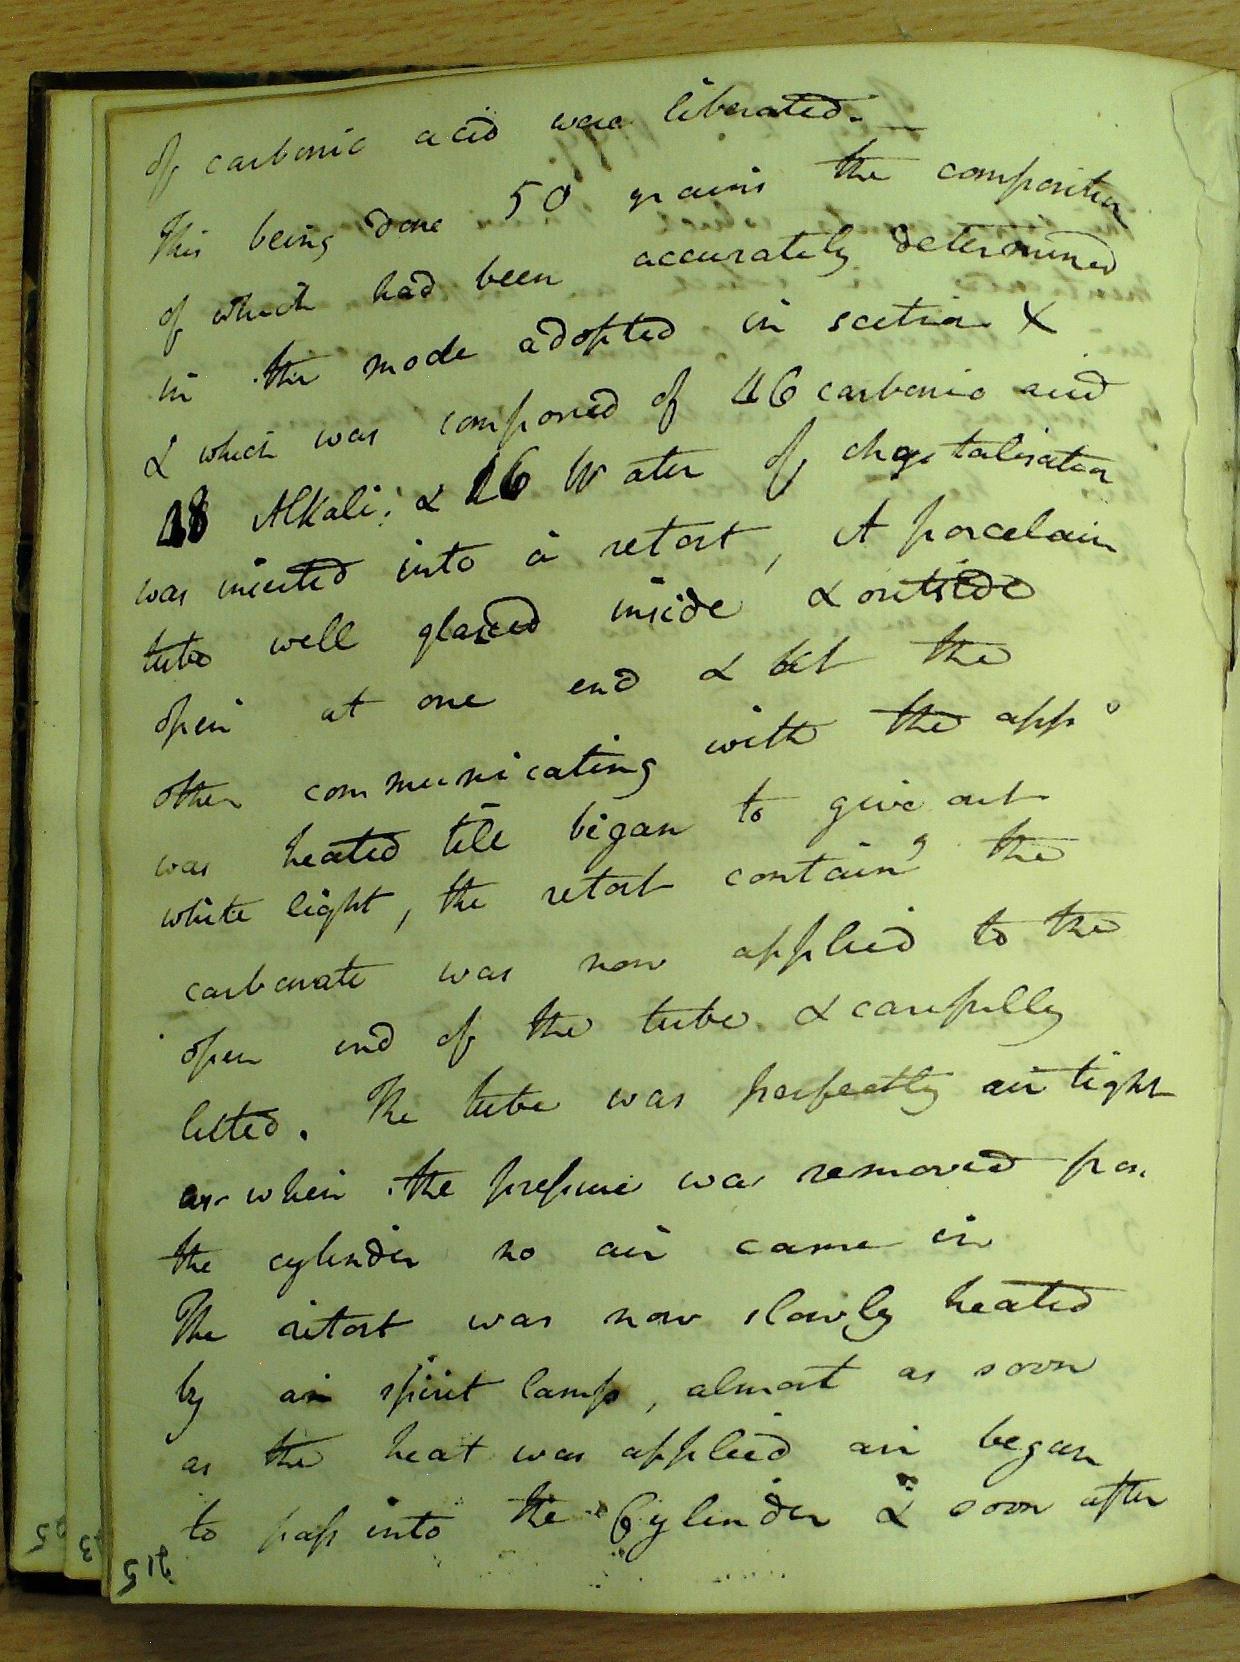 of carbonic acid were liberated. —
This being done 50 grains the composition
of which had been accurately determined
in the mode adopted in section X
& which was composed of 16 carbonic acid
18 Alkali; & 16 Water of chrystalisation
was inserted into a retort, A porcelain
tube well glazed inside & outside
open at one end & the
other communicating with the app°
was heated till began to give out
white light, the retort contain^g the
carbonate was now applied to the
open end of the tube & carefully
luted. The tube was perfectly air tight
as when the pressure was removed from
the cylinder no air came in
The retort was now slowly heated
by an spirit lamp, almost as soon
as the heat was applied air began
to pass into the Cylinder & soon after
215